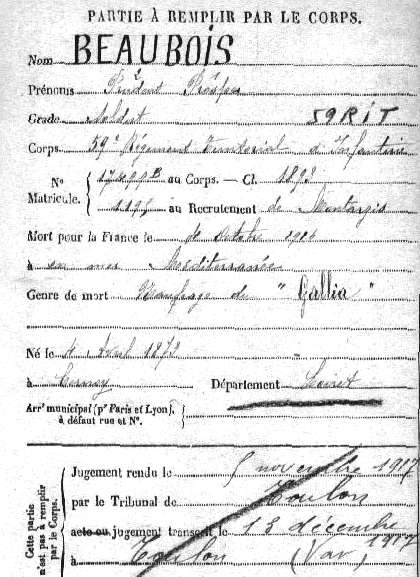 PARTIE À REMPLIR PAR LE CORPS.
Nom BEAUBOIS
Prénoms Prosper
Grade Soldat 59 RIT
Corps. 59e Régiment Territorial d'Infanterie
No Matricule. au Corps. — Cl. 1892
1195 au Recrutement de Montargis
Mort pour la France le 4 Octobre 1916
à en mer Méditerranée
Genre de mort Naufrage du "Gallia"
Né le 4 Avril 1872
à Département Loiret
Arrt municipal (pr Paris et Lyon), à défaut rue et No.
Cette partie n'est pas à remplir par le Corps.
Jugement rendu le 5 novembre 1917
par le Tribunal de Toulon
acte ou jugement transcrit le 13 décembre 1917
à Toulon (Var)